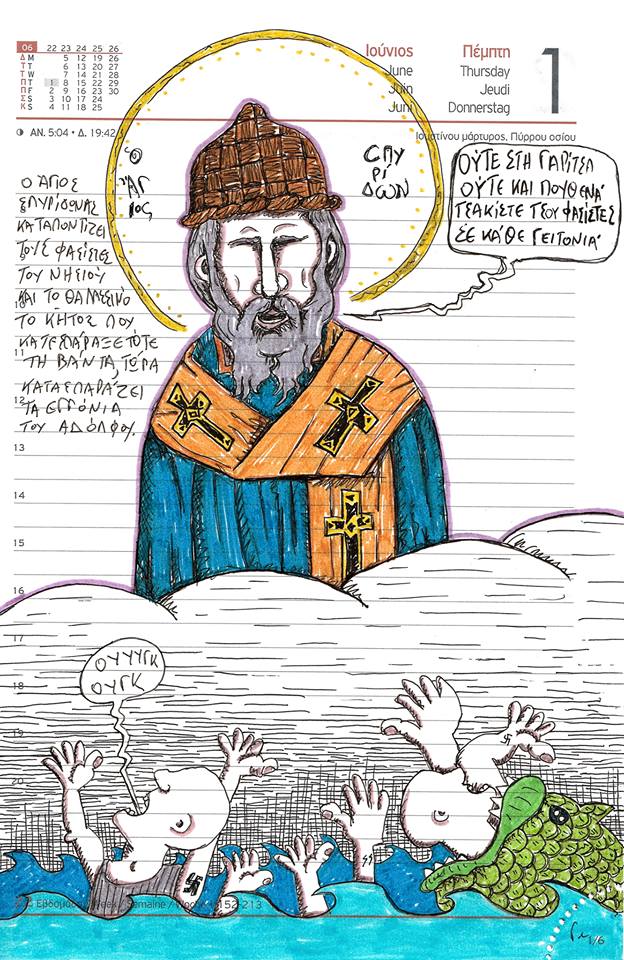 06 22 23 24 25 26
Δ M 5 12 19 26
T T 6 13 20 27
T W 7 14 21 28
Π T 1 8 15 22 29
Π F 2 9 16 23 30
Σ S 3 10 17 24
K S 4 11 18 25
ΑΝ. 5:04 • Δ. 19:42
Ιούνιος
June
Juin
Juni
Πέμπτη
Thursday
Jeudi
Donnerstag
1
Ιουστίνου μάρτυρος, Πύρρου οσίου
Ο ΑΓΙΟΣ
ΣΠΥΡΙΔΩΝΑΣ
ΚΑΤΑΠΟΝΤΙΖΕΙ
ΤΟΥΣ ΦΑΣΙΣΤΕΣ
ΤΟΥ ΝΗΣΙΟΥ
ΚΑΙ ΤΟ ΘΑΛΑΣΣΙΝΟ
ΤΟ ΚΗΤΟΣ ΠΟΥ
ΚΑΤΕΣΠΑΡΑΞΕ ΤΌΤΕ
ΤΗ ΒΑΝΤΑ, ΤΩΡΑ
ΚΑΤΑΣΠΑΡΑΖΕΙ
ΤΑ ΕΓΓΟΝΙΑ
ΤΟΥ ΑΔΟΛΦΟΥ.
Ὁ
Ἅγ
ιος
CΠΥ
ΡΙ
ΔΩΝ
ΟΥΤΕ ΣΤΗ ΓΑΡΙΤΣΑ
ΟΥΤΕ ΚΑΙ ΠΟΥΘΕΝΑ
ΤΣΑΚΙΣΤΕ ΤΣΟΥ ΦΑΣΙΣΤΕΣ
ΣΕ ΚΑΘΕ ΓΕΙΤΟΝΙΑ
11
12
13
14
15
16
17
18
20
ΟΥΥΥΓΚ
ΟΥΓΚ
Εβδομάδα / Week / Semaine / Woche 152-213
1/6